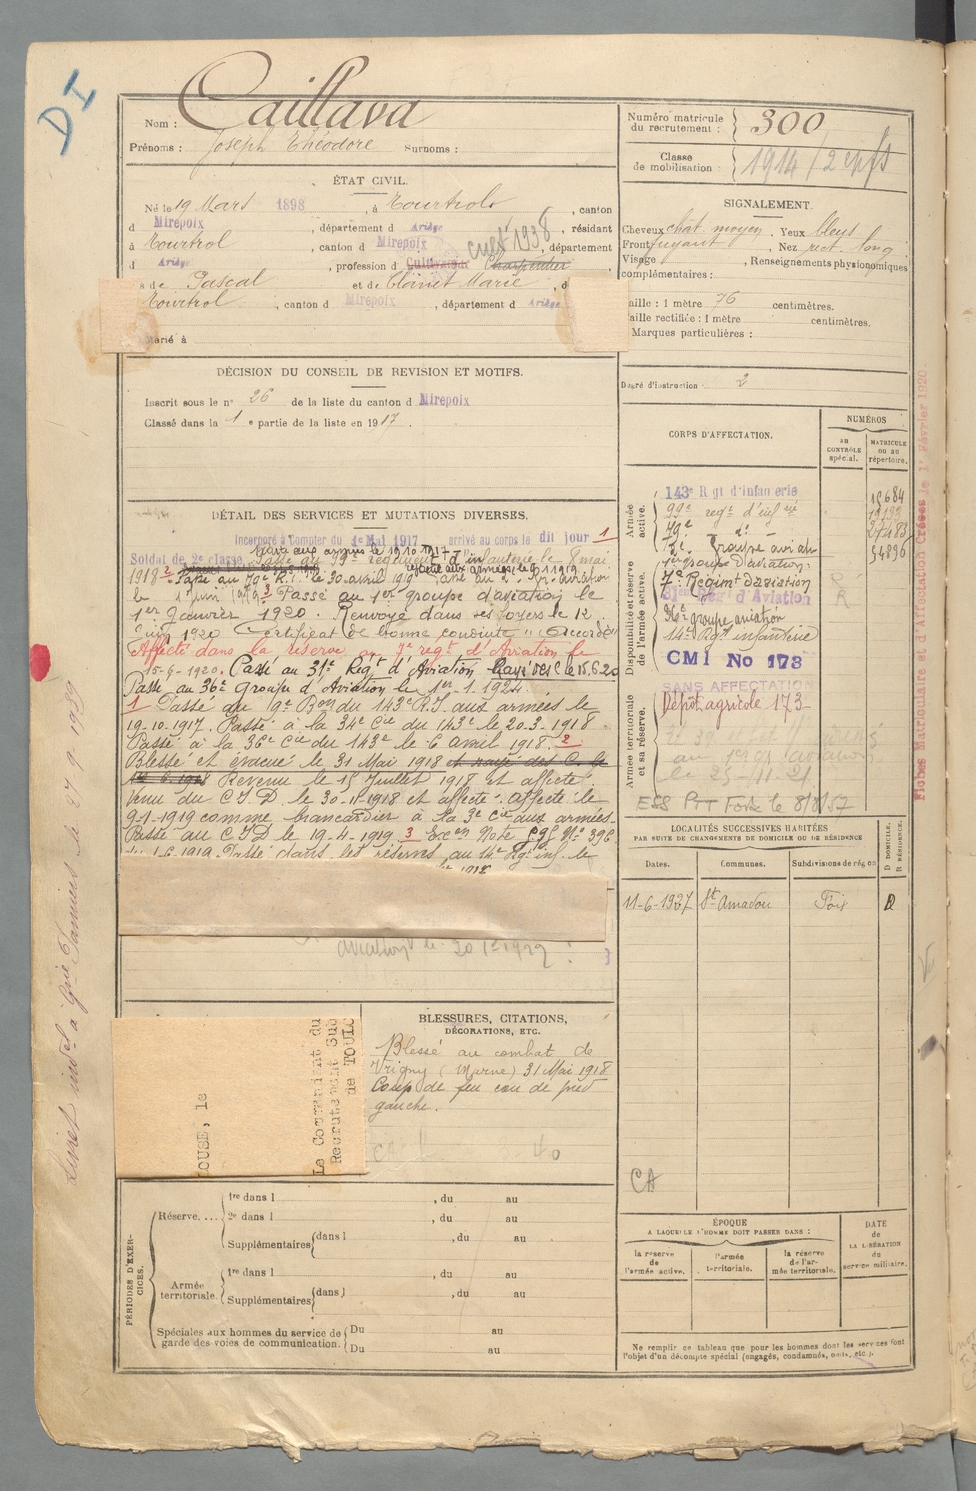 D I
Nom : Caillava
Prénoms : Joseph Théodore Surnoms :
ÉTAT CIVIL.
Né le 19 Mars 1898, à Tourtrol, canton
d Mirepoix, département d Ariège, résidant
à Tourtrol, canton d Mirepoix, département
d Ariège, profession d Cultivateur Charpentier
cult 1938
s de Pascal et de Clanet Marie, d
Tourtrol, canton d Mirepoix, département d Ariège
Marié à
DÉCISION DU CONSEIL DE REVISION ET MOTIFS.
Inscrit sous le n° 26 de la liste du canton d Mirepoix
Classé dans la 1 e partie de la liste en 1917.
DÉTAIL DES SERVICES ET MUTATIONS DIVERSES.
Incorporé à compter du 1er Mai 1917 arrivé au corps le dit jour 1
Soldat de 2e classe
Passé aux armées le 19 10 1917
Passé au 99e régiment d'infanterie le 8 mai
1918 2 Passé au 79e R.I. le 30 avril 1919 Passé au 2e Gr. aviation
le 1 juin 1919 3 Passé au 1er groupe d'aviation le
1er Janvier 1920. Renvoyé dans ses foyers le 12
Juin 1920 Certificat de bonne conduite "Accordé"
Affecté dans la réserve au 7e regt d'Aviation le
15-6-1920. Passé au 31e Regt d'Aviation Rayé des C le 15.6.20
Passé au 36e groupe d'Aviation le 1er-1-1924.
1 Passé au 9e Bon du 143e R.I. aux armées le
19-10-1917. Passé à la 34e Cie du 143e le 20-3-1918
Passé à la 36e Cie du 143e le 6 avril 1918. 2
Blessé et évacué le 31 Mai 1918 et rayé des C. le
6.1918 Revenu le 15 Juillet 1918 et affecté
Venu du C I D le 30-11-1918 et affecté. affecté le
9-1-1919 comme brancardier à la 3e Cie aux armées.
Passé au C I D le 19-4-1919 3 Note N° 396
1-6-1919 Passé dans les réserves au 14e Rgt inf. le
aviation le 20
BLESSURES, CITATIONS,
DÉCORATIONS, ETC.
Blessé au combat de
Vrigny (Marne) 31 Mai 1918
Coup de feu cou de pied
gauche.
LOUSE, le
Le Commandant du
Recrutement Sub
de TOULO
PÉRIODES D'EXERCICES.
Réserve.... 1re dans l , du au
2e dans l , du au
Supplémentaires dans l , du au
Armée territoriale. 1re dans l , du au
Supplémentaires dans l , du au
Spéciales aux hommes du service de garde des voies de communication. Du au
Du au
Numéro matricule du recrutement : 300
Classe de mobilisation : 1914 / 2 enfts
SIGNALEMENT.
Cheveux chât. moyen. Yeux bleus
Front fuyant, Nez rect. long
Visage , Renseignements physionomiques
complémentaires :
aille : 1 mètre 76 centimètres.
aille rectifiée : 1 mètre centimètres.
Marques particulières :
Degré d'instruction 2
CORPS D'AFFECTATION.
NUMÉROS
AU CONTRÔLE spécial.
MATRICULE OU AU répertoire.
Armée active.
143e Rgt d'infanterie 15684
99e regt d'infrie
79e d° 27483
2e Groupe aviaton 54896
1er groupe d'aviation
Disponibilité et réserve de l'armée active.
7e Regimt d'aviation R
31eme Rég d'Aviation R
36e groupe aviation
14e Rgt infanterie
CMI No 173
Armée territoriale et sa réserve.
SANS AFFECTATION
Dépôt agricole 173
ESS PTT Foix le 8/8/57
LOCALITÉS SUCCESSIVES HABITÉES
PAR SUITE DE CHANGEMENTS DE DOMICILE OU DE RÉSIDENCE
D DOMICILE.
R RÉSIDENCE.
Dates. Communes. Subdivisions de région
11-6-1927 St Amadou Foix D
CA
ÉPOQUE
A LAQUELLE L'HOMME DOIT PASSER DANS :
la réserve de l'armée active.
l'armée territoriale.
la réserve de l'armée territoriale.
DATE
de
LA LIBÉRATION
du
service militaire.
Ne remplir ce tableau que pour les hommes dont les services font
l'objet d'un décompte spécial (engagés, condamnés, omis, etc.).
Fiches Matriculaire et d'Affectation Créées le 1er Février 1920.
Livret indel à Gnie Pamiers le 27 9 1939